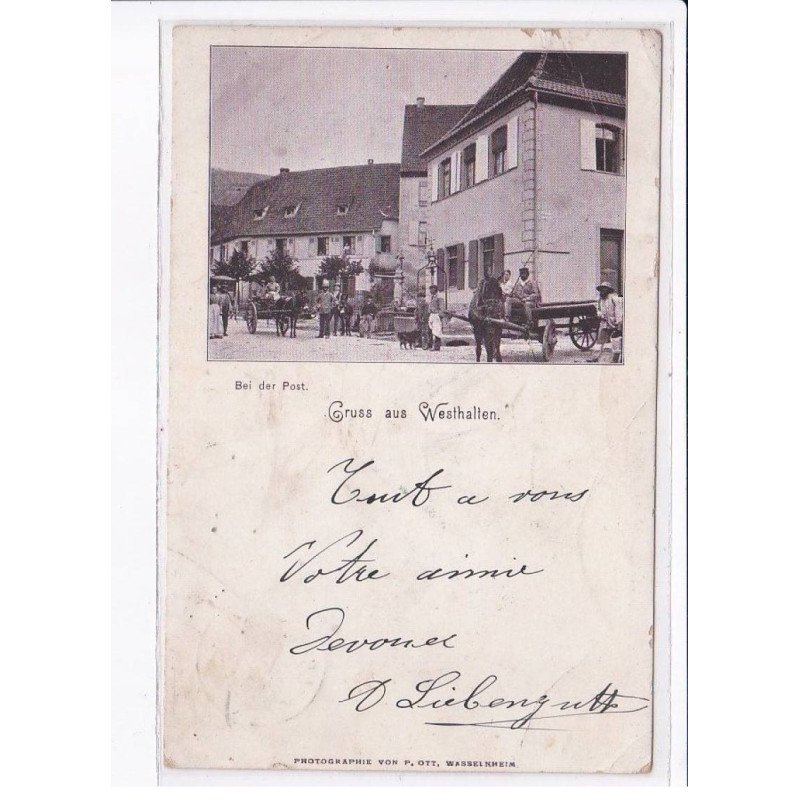 Bei der Post.
Gruss aus Westhalten.
Tout a vous
Votre amie
Devouee
D Liebengutt
PHOTOGRAPHIE VON P. OTT, WASSELNHEIM.